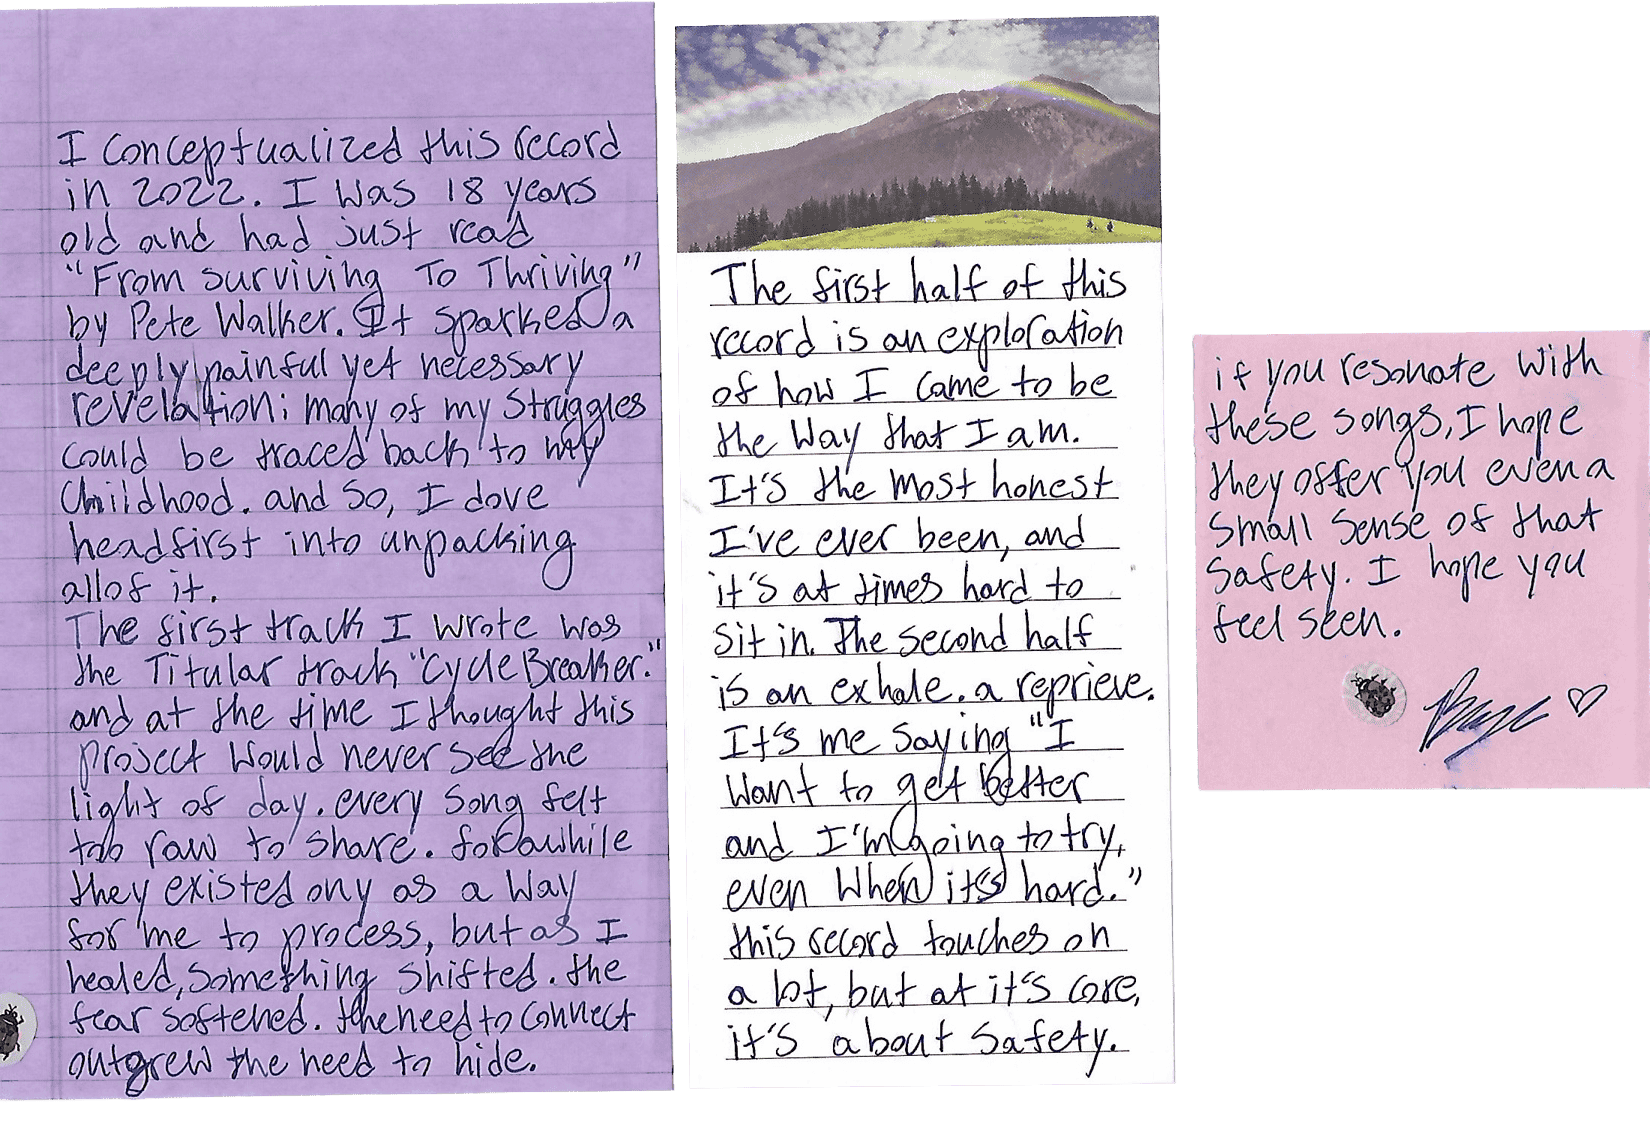 I conceptualized this record
in 2022. I was 18 years
old and had just read
"From surviving To Thriving"
by Pete Walker. It sparked a
deeply painful yet necessary
revelation: many of my struggles
could be traced back to my
Childhood. and so, I dove
headfirst into unpacking
all of it.
The first track I wrote was
the Titular track "Cycle Breaker."
and at the time I thought this
project would never see the
light of day. every song felt
too raw to share. for awhile
they existed ony as a way
for me to process, but as I
healed, something shifted. the
fear softened. the need to connect
outgrew the need to hide.
The first half of this
record is an exploration
of how I came to be
the way that I am.
It's the most honest
I've ever been, and
it's at times hard to
sit in. The second half
is an exhale. a reprieve.
It's me saying "I
want to get better
and I'm going to try,
even when it's hard."
this record touches on
a lot, but at it's core,
it's about safety.
if you resonate with
these songs, I hope
they offer you even a
small sense of that
safety. I hope you
feel seen.